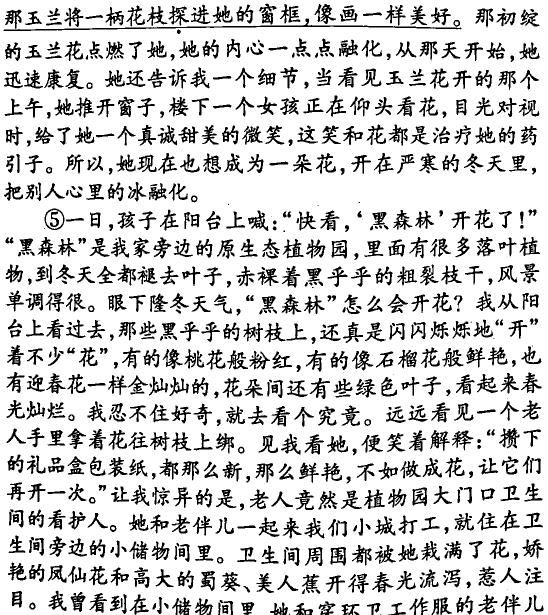 那玉兰将一柄花枝探进她的窗框,像画一样美好。那初绽
的玉兰花点燃了她,她的内心一点点融化,从那天开始,她
迅速康复。她还告诉我一个细节,当看见玉兰花开的那个
上午,她推开窗子,楼下一个女孩正在仰头看花,目光对视
时,给了她一个真诚甜美的微笑,这笑和花都是治疗她的药
引子。所以,她现在也想成为一朵花,开在严寒的冬天里,
把别人心里的冰融化。
⑤一日,孩子在阳台上喊:“快看,‘黑森林’开花了!”
“黑森林”是我家旁边的原生态植物园,里面有很多落叶植
物,到冬天全都褪去叶子,赤裸着黑乎乎的粗裂枝干,风景
单调得很。眼下隆冬天气,“黑森林”怎么会开花?我从阳
台上看过去,那些黑乎乎的树枝上,还真是闪闪烁烁地“开”
着不少“花”,有的像桃花般粉红,有的像石榴花般鲜艳,也
有迎春花一样金灿灿的,花朵间还有些绿色叶子,看起来春
光灿烂。我忍不住好奇,就去看个究竟。远远看见一个老
人手里拿着花往树枝上绑。见我看她,便笑着解释:“攒下
的礼品盒包装纸,都那么新,那么鲜艳,不如做成花,让它们
再开一次。”让我惊异的是,老人竟然是植物园大门口卫生
间的看护人。她和老伴儿一起来我们小城打工,就住在卫
生间旁边的小储物间里。卫生间周围都被她栽满了花,娇
艳的凤仙花和高大的蜀葵、美人蕉开得春光流泻,惹人注
目。我曾看到在小储物间里,她和穿环卫工作服的老伴儿